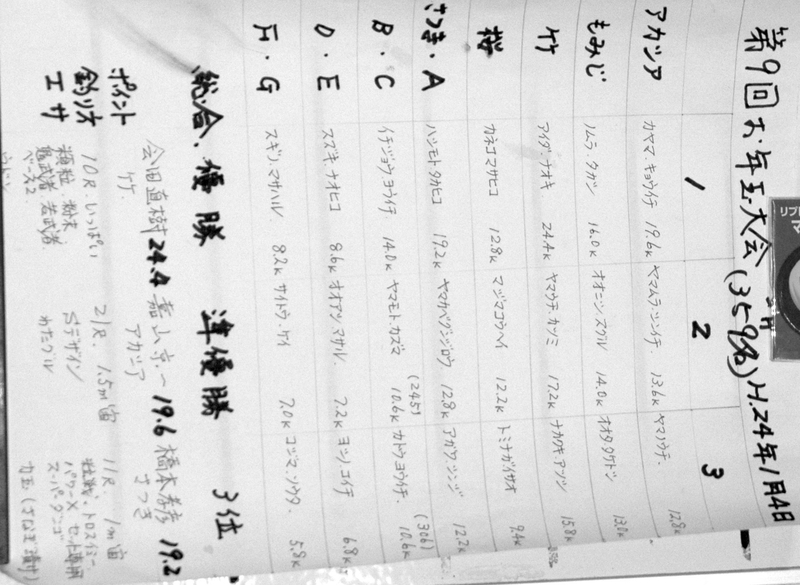 第9回 お年玉大会 (359名) H.24年1月4日
1 2 3
アカシア カヤマ.キョウイチ 19.6K ヤマムラ.シンイチ. 13.6K ヤマノウチ. 12.8K
もみじ ノムラ.タカシ 16.0K オオニシ.スグル 14.0K オオタ.タケトシ 13.0K
ケケ アイダ.ナオキ 24.4K ヤマウチ.カツミ 17.2K ナカワキ.アツシ 15.8K
桜 カネコマサヒコ 12.8K マジマコウヘイ 12.2K トミナガイサオ 9.4K
さつき・A ハシモトタカヒコ 19.2K 12.8K アガツ.シンジ 12.2K
B・C イチジョウ.ヨウイチ 14.0K ヤマモト.カズマ (245) 10.6K カトウ.ヨウイチ. (306) 10.6K
D・E スズキ.ナオヒコ 8.6K オオアシ.マサル. 7.2K ヨシノ.コイチ 6.8K
F・G スギノ.マサハル. 8.2K サイトウ.ケイ 7.0K コジマ.ソウタ. 5.8K
総合.優勝 準優勝 3位
会田直樹 24.4 嘉山京一 19.6 橋本孝彦 19.2
ポイント ケケ. アカシア さつき
釣り方 10R. いっぱい 21R. 1.5m宙 11R. 1m宙
エサ 顆粒.粉末 Sデザイン
鬼武者 若武者 わたグル パワーX
ベース2. スーパーダンゴ
ウドン 力玉
リプト